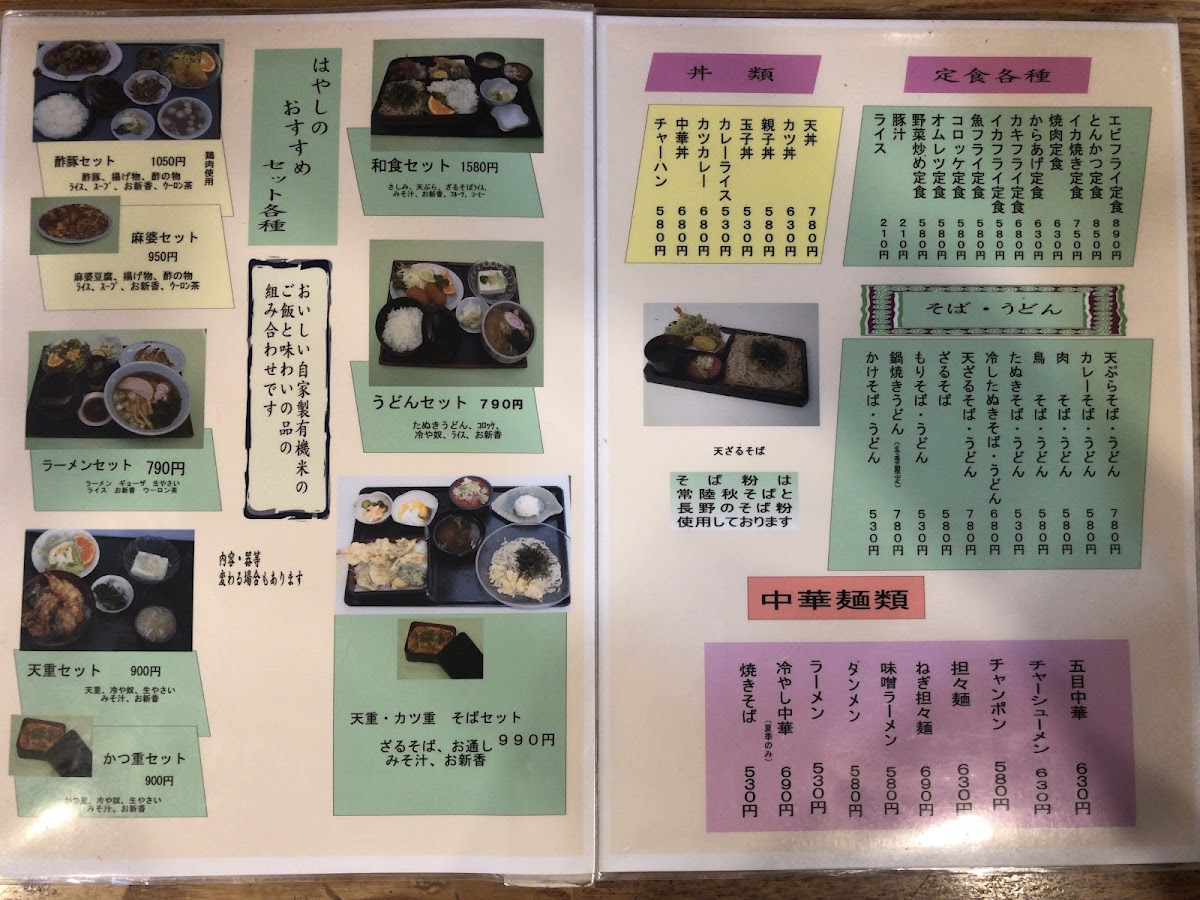 はやしの
おすすめ
セット各種
酢豚セット 1050円
鶏肉使用
酢豚、揚げ物、酢の物
ライス、スープ、お新香、ウーロン茶
麻婆セット
950円
麻婆豆腐、揚げ物、酢の物
ライス、スープ、お新香、ウーロン茶
ラーメンセット 790円
ラーメン ギョーザ 生やさい
ライス お新香 ウーロン茶
天重セット 900円
天重、冷や奴、生やさい
みそ汁、お新香
かつ重セット
900円
かつ重、冷や奴、生やさい
みそ汁、お新香
おいしい自家製有機米の
ご飯と味わいの品の
組み合わせです
内容・器等
変わる場合もあります
和食セット 1580円
さしみ、天ぷら、ざるそばライス、
みそ汁、お新香、フルーツ、コーヒー
うどんセット 790円
たぬきうどん、コロッケ、
冷や奴、ライス、お新香
天重・カツ重 そばセット
990円
ざるそば、お通し
みそ汁、お新香
丼 類
天丼 780円
カツ丼 630円
親子丼 580円
玉子丼 530円
カレーライス 530円
カツカレー 680円
中華丼 680円
チャーハン 580円
天ざるそば
そば粉は
常陸秋そばと
長野のそば粉
使用しております
定食各種
エビフライ定食 890円
とんかつ定食 850円
イカ焼き定食 750円
焼肉定食 630円
からあげ定食 630円
カキフライ定食 680円
イカフライ定食 580円
魚フライ定食 580円
コロッケ定食 580円
オムレツ定食 580円
野菜炒め定食 580円
豚汁 210円
ライス 210円
そば・うどん
天ぷらそば・うどん 780円
カレーそば・うどん 580円
肉 そば・うどん 580円
鳥 そば・うどん 580円
たぬきそば・うどん 530円
冷したぬきそば・うどん 680円
天ざるそば・うどん 780円
ざるそば 580円
もりそば・うどん 530円
鍋焼きうどん(冬季限定) 780円
かけそば・うどん 530円
中華麺類
五目中華 630円
チャーシューメン 630円
チャンポン 580円
担々麺 630円
ねぎ担々麺 690円
味噌ラーメン 580円
タンメン 580円
ラーメン 530円
冷やし中華(夏季のみ) 690円
焼きそば 530円